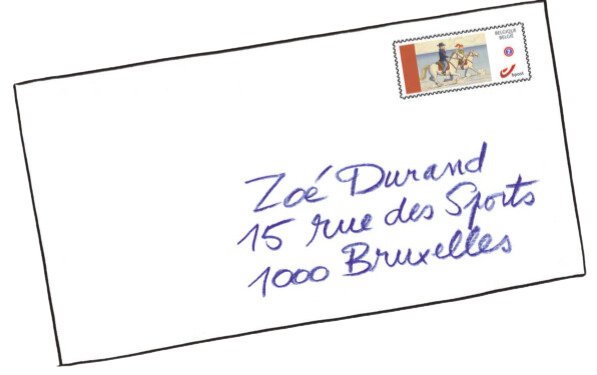 BELGIQUE
BELGIË
1
bpost
Zoé Durand
15 rue des Sports
1000 Bruxelles